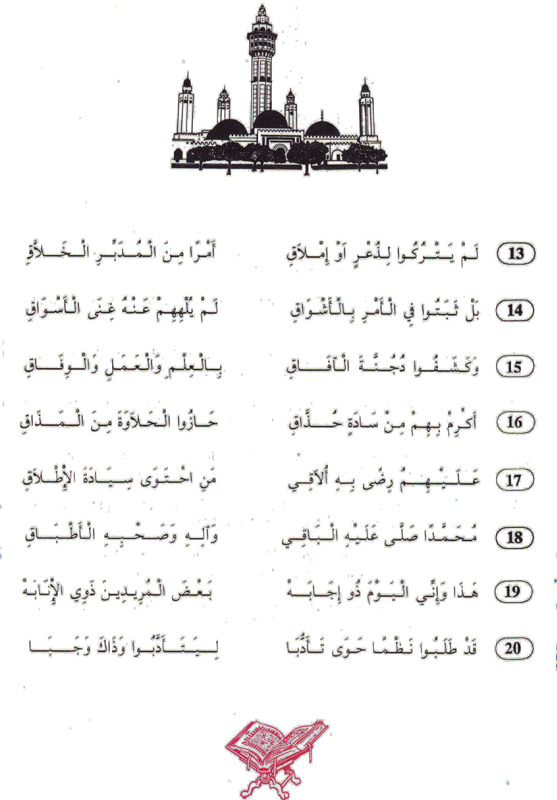 13 لَمْ يَتْرُكُوا لِذُعْرٍ اَوْ إِمْلَاقِ أَمْرًا مِنَ الْمُدَبِّرِ الْخَلاَّقِ
14 بَلْ ثَبَتُوا فِي الْأَمْرِ بِالْأَشْوَاقِ لَمْ يُلْهِهِمْ عَنْهُ غِنَى الْأَسْوَاقِ
15 وَكَشَفُوا دُجُنَّةَ الْآفَاقِ بِالْعِلْمِ وَالْعَمَلِ وَالْوِفَاقِ
16 أَكْرِمْ بِهِمْ مِنْ سَادَةٍ حُذَّاقِ حَازُوا الْحَلَاوَةَ مِنَ الْمَذَاقِ
17 عَلَيْهِمُ رِضًى بِهِ أُلَاقِي مَنِ احْتَوَى سِيَادَةَ الإِْطْلَاقِ
18 مُحَمَّدًا صَلَّى عَلَيْهِ الْبَاقِي وَآلِهِ وَصَحْبِهِ الْأَطْبَاقِ
19 هَذَا وَإِنِّي الْيَوْمَ ذُو إِجَابَهْ بَعْضَ الْمُرِيدِينَ ذَوِي الإِْنَابَهْ
20 قَدْ طَلَبُوا نَظْمًا حَوَى تَأَدُّبَا لِيَتَأَدَّبُوا وَذَاكَ وَجَبَا